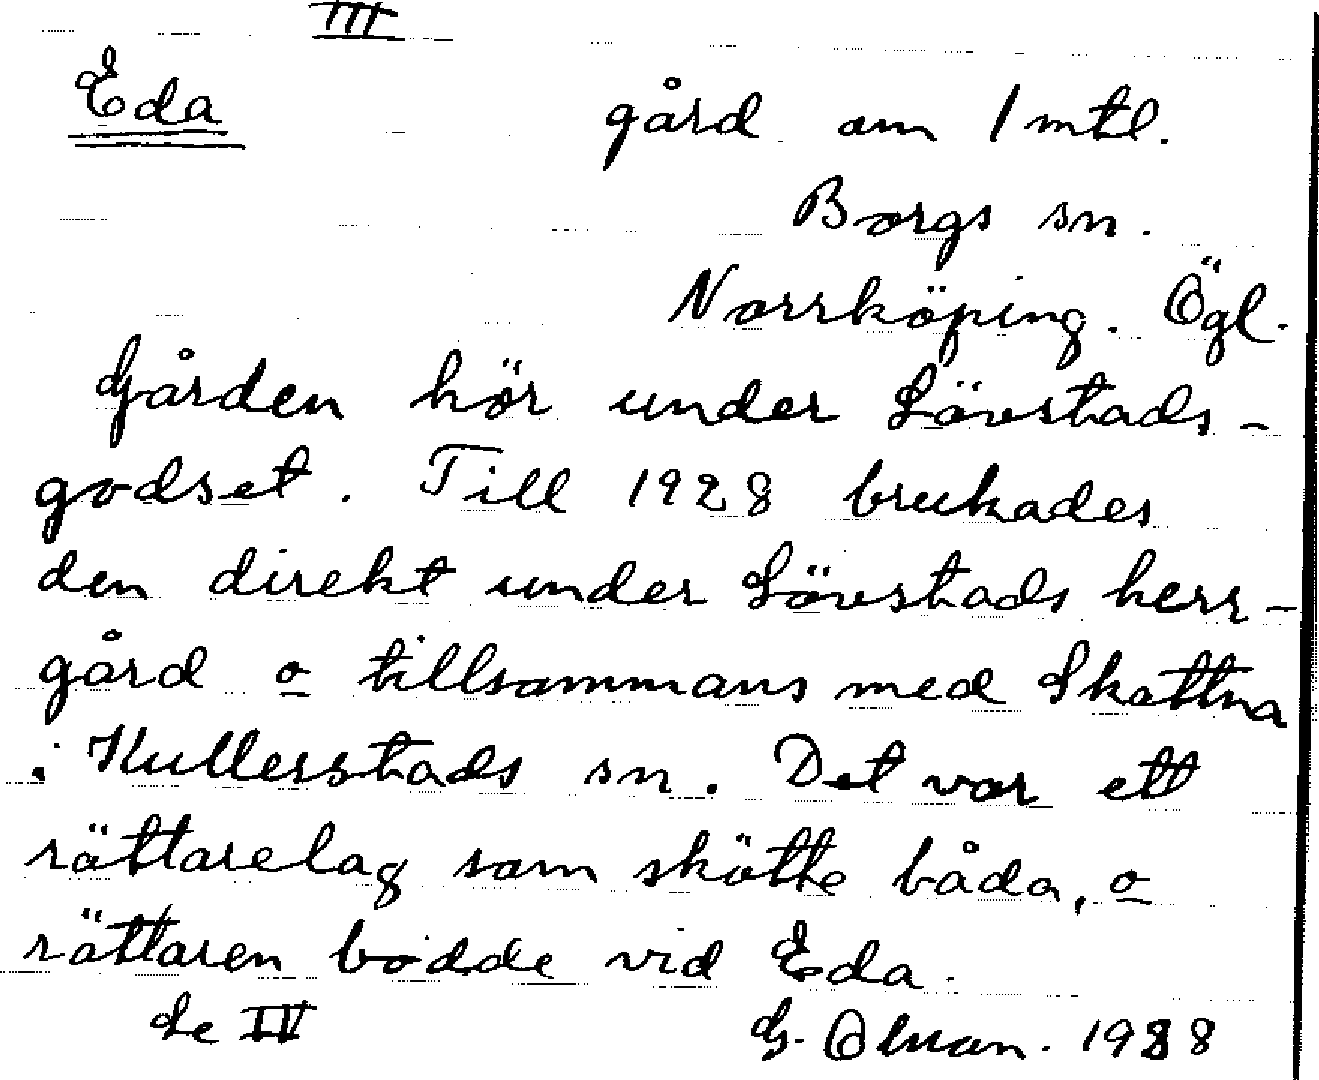 III
Eda gård om 1 mtl.
Borgs sn.
Norrköping. Ögl.
Gården hör under Lövstads-
godset. Till 1928 brukades
den direkt under Lövstads herr-
gård o tillsammans med Skattna
i Kullerstads sn. Det var ett
rättarelag som skötte båda, o
rättaren bodde vid Eda.
Se IV G. 1938